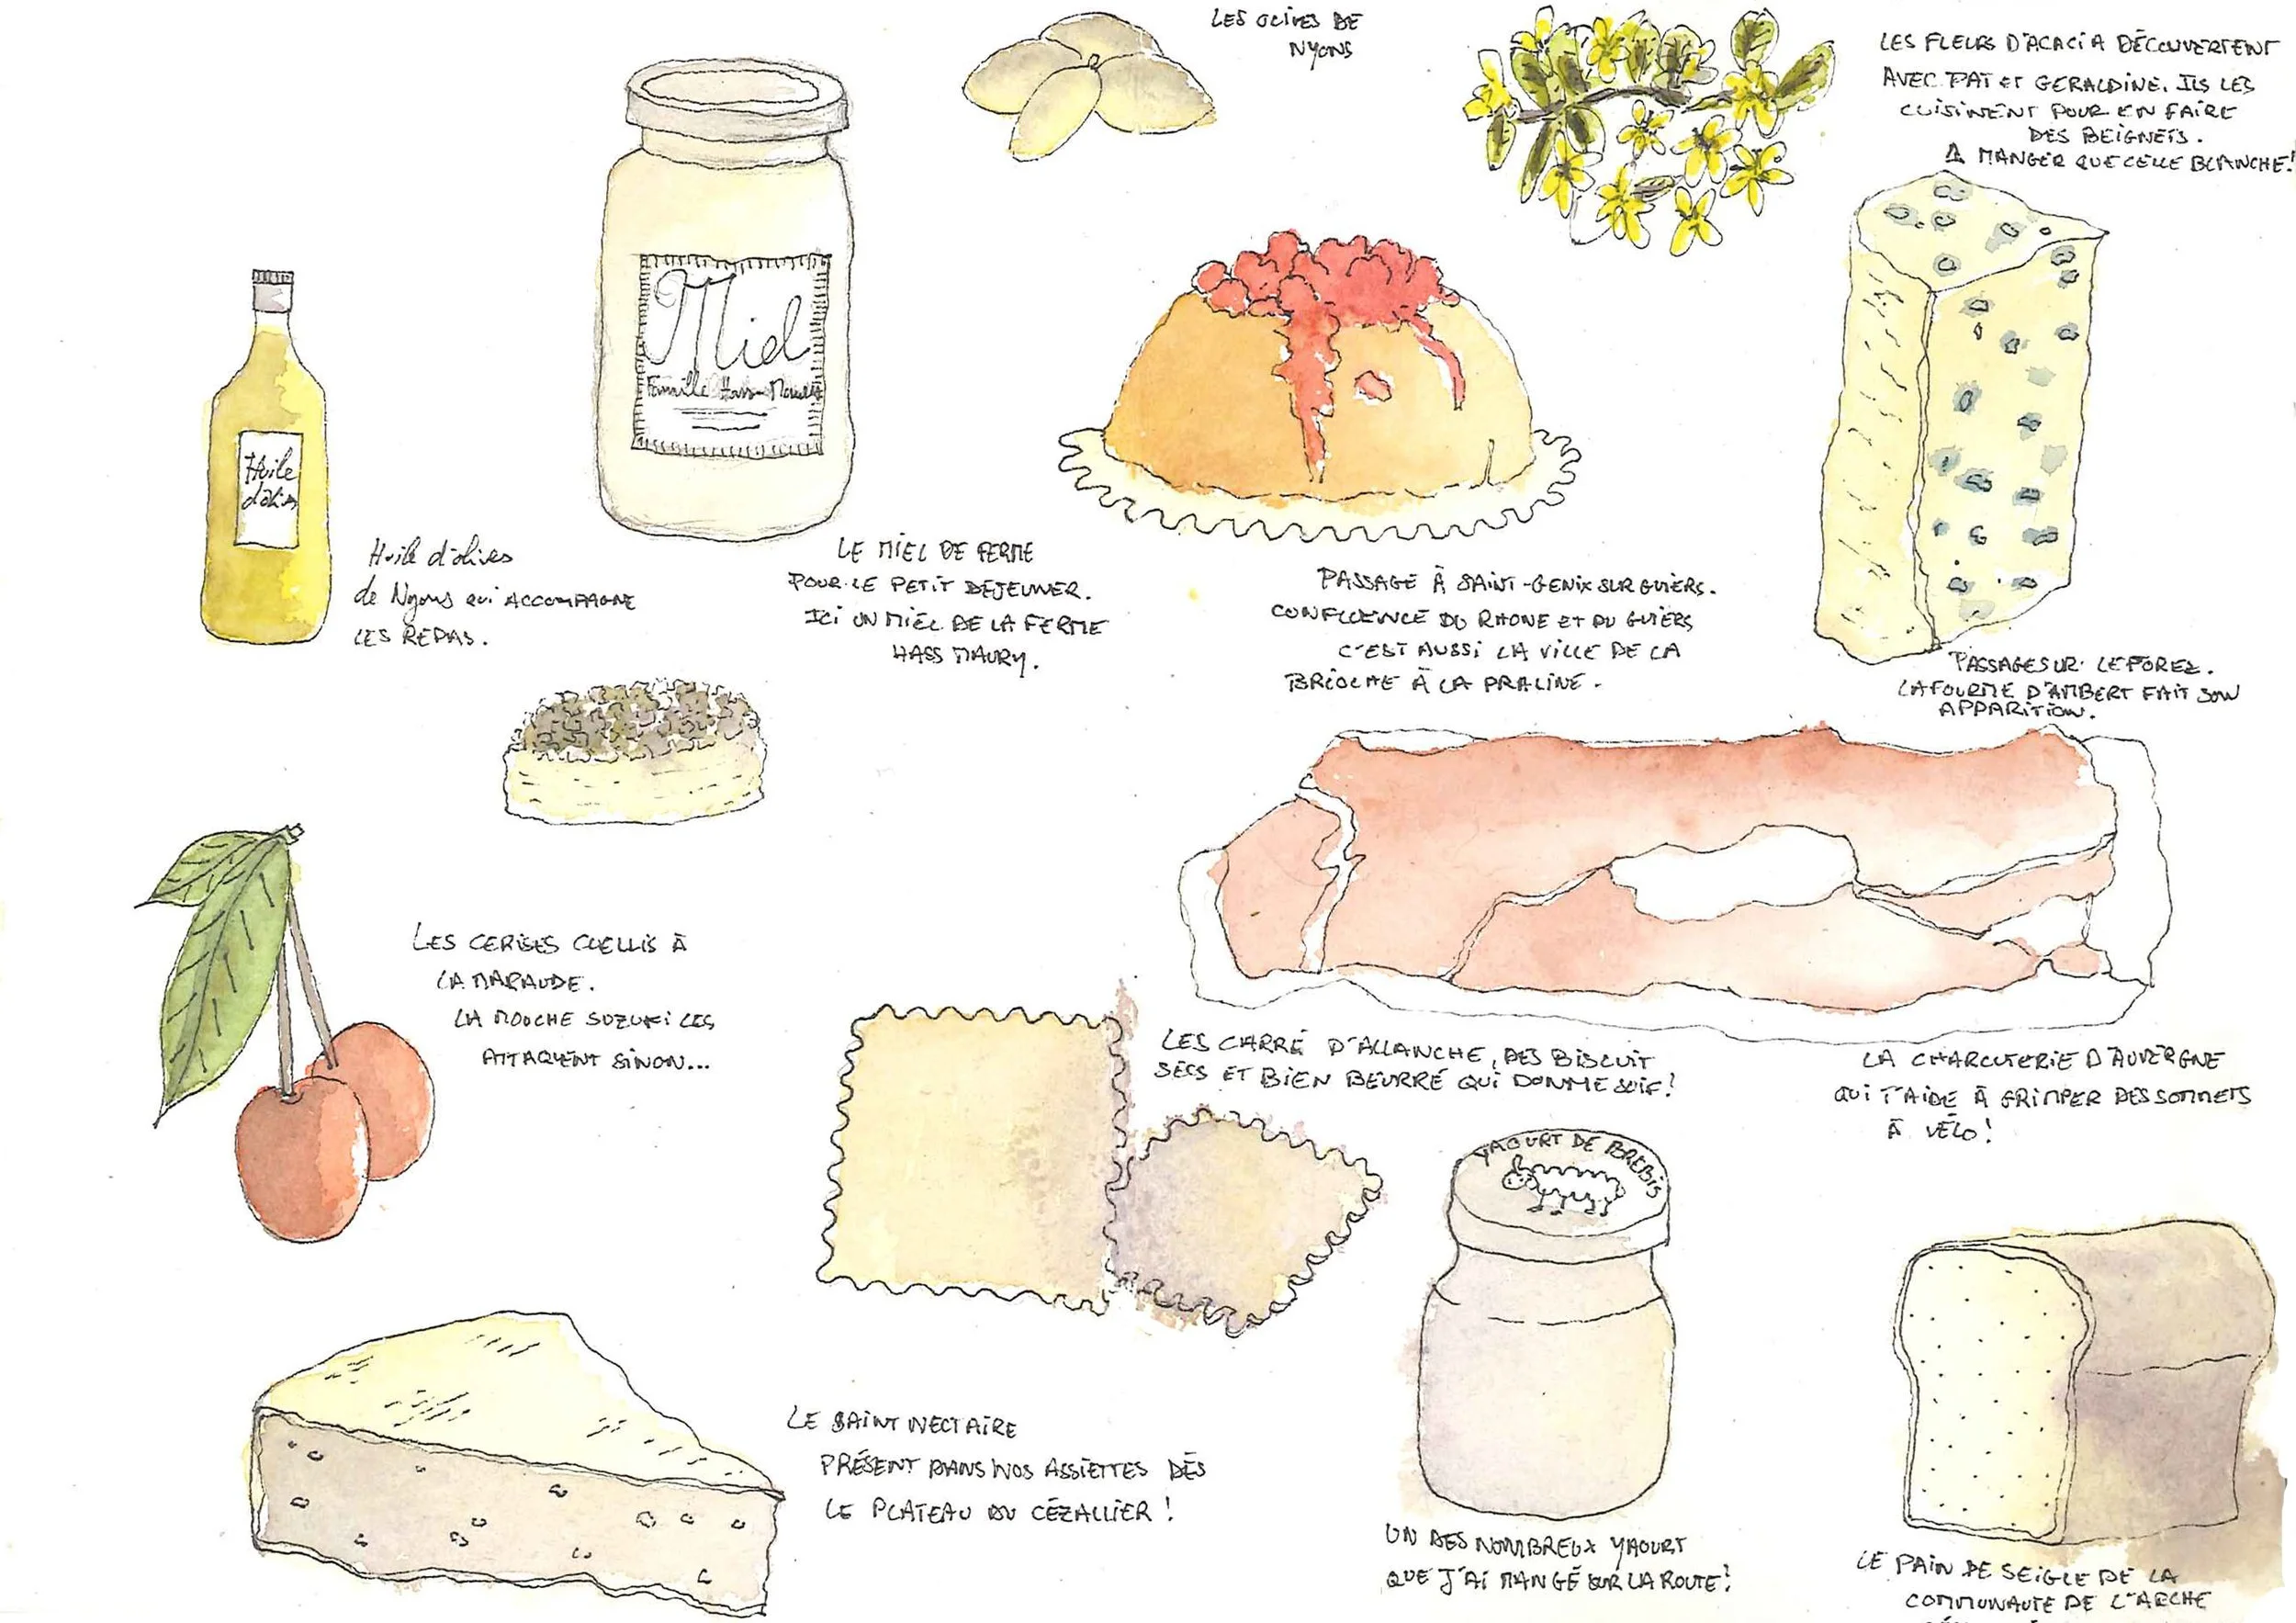 LES OLIVES DE
NYONS
LES FLEURS D'ACACIA DÉCOUVERTENT
AVEC PAT ET GERALDINE. ILS LES
CUISINENT POUR EN FAIRE
DES BEIGNETS.
MANGER QUE CELLE BLANCHE!
Miel
Famille Hass
Huile
d'oliv
Huile d'olives
de Nyons QUI ACCOMPAGNE
LES REPAS.
LE MIEL DE FERME
POUR LE PETIT DEJEUNER.
ICI UN MIEL DE LA FERME
HASS MAURY.
PASSAGE À SAINT-GENIX SUR GUIERS.
CONFLUENCE DU RHONE ET DU GUIERS
C'EST AUSSI LA VILLE DE LA
BRIOCHE À LA PRALINE.
PASSAGE SUR LE FOREZ.
LA FOURME D'AMBERT FAIT SON
APPARITION.
LES CERISES CUELLIS À
LA MARAUDE.
LA MOUCHE SUZUKI LES
ATTAQUENT SINON...
LES CARRÉ D'ALLANCHE, DES BISCUIT
SECS ET BIEN BEURRÉ QUI DONNE SOIF!
LA CHARCUTERIE D'AUVERGNE
QUI T'AIDE À GRIMPER DES SOMMETS
À VÉLO!
YAOURT DE BREBIS
LE SAINT NECTAIRE
PRÉSENT DANS NOS ASSIETTES DÈS
LE PLATEAU DU CÉZALLIER!
UN DES NOMBREUX YAOURT
QUE J'AI MANGÉ SUR LA ROUTE!
LE PAIN DE SEIGLE DE LA
COMMUNAUTE DE L'ARCHE